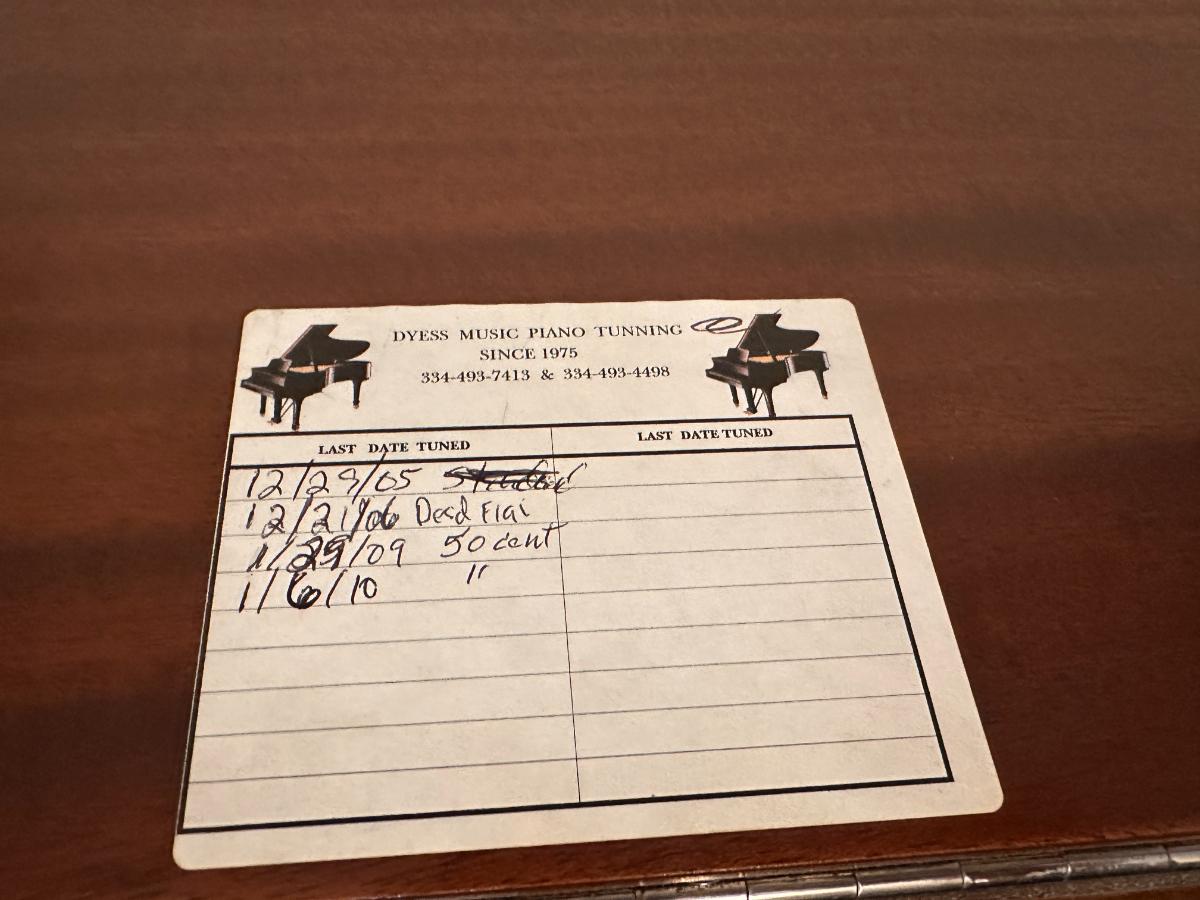 DYESS MUSIC PIANO TUNNING
SINCE 1975
334-493-7413 & 334-493-4498
LAST DATE TUNED
LAST DATE TUNED
12/29/05
12/21/06 Dead Flat
1/29/09 50 cent
1/6/10 "